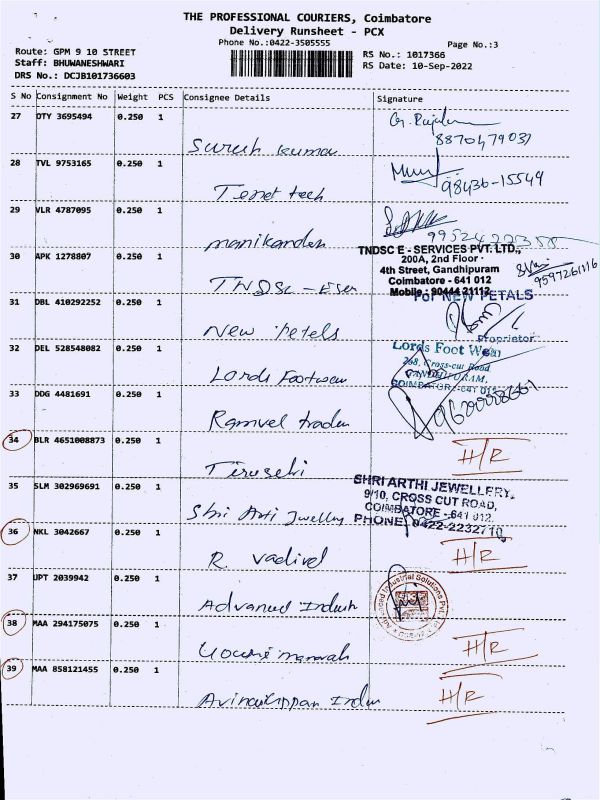 THE PROFESSIONAL COURIERS, Coimbatore
Delivery Runsheet - PCX
Phone No.:0422-3505555
Page No.:3
Route: GPM 9 10 STREET
Staff: BHUWANESHWARI
DRS No.: DCJB101736603
RS No.: 1017366
RS Date: 10-Sep-2022
S No Consignment No Weight PCS Consignee Details Signature
27 OTY 3695494 0.250 1
Suresh Kumar
8870479037
28 TVL 9753165 0.250 1
Tenet tech
98436-15549
29 VLR 4787095 0.250 1
manikanden
TNDSC E - SERVICES PVT. LTD.,
200A, 2nd Floor
4th Street, Gandhipuram
Coimbatore - 641 012
Mobile : 90444 21112
9597261116
30 APK 1278807 0.250 1
TNDSC - Eser
31 DBL 410292252 0.250 1
New Petels
For NEW PETALS
Proprietor
32 DEL 528548082 0.250 1
Lords Footwear
Lords Foot Wear
268, Cross-cut Road
GANDHIPURAM,
COIMBATORE-641 012
33 DDG 4481691 0.250 1
Ramvel traders
34 BLR 4651008873 0.250 1
H/R
35 SLM 302969691 0.250 1
Shri Arti Jwellery
SHRI ARTHI JEWELLERY,
9/10, CROSS CUT ROAD,
COIMBATORE - 641 012.
PHONE: 0422-2232710
36 NKL 3042667 0.250 1
R. Vadivel
H/R
37 UPT 2039942 0.250 1
Advanced Indush
Advanced Industrial Solutions Pvt. Ltd.
38 MAA 294175075 0.250 1
H/R
39 MAA 858121455 0.250 1
H/R